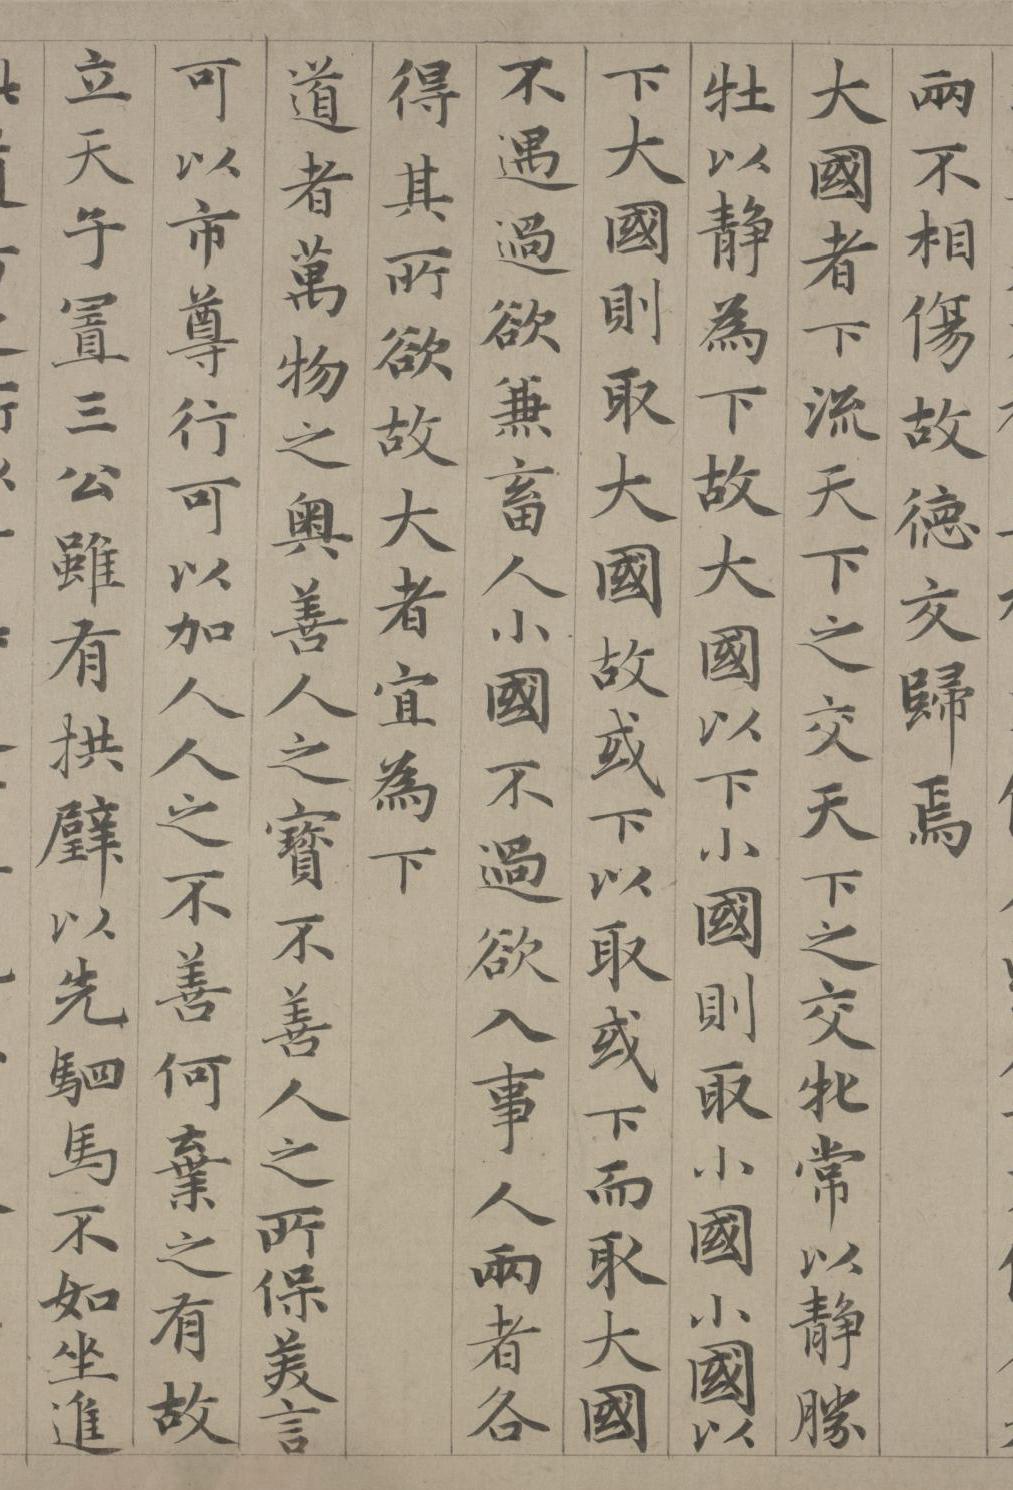 兩不相傷故德交歸焉
大國者下流天下之交天下之交牝常以靜勝
牡以靜為下故大國以下小國則取小國小國以
下大國則取大國故或下以取或下而取大國
不遇過欲兼畜人小國不過欲入事人兩者各
得其所欲故大者宜為下
道者萬物之奧善人之寶不善人之所保美言
可以市尊行可以加人人之不善何棄之有故
立天子置三公雖有拱璧以先駟馬不如坐進